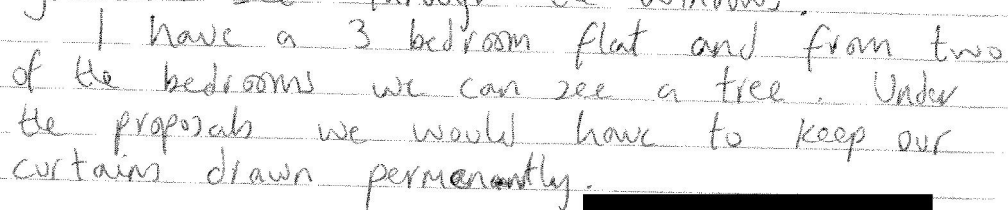 through the windows.
I have a 3 bedroom flat and from two
of the bedrooms we can see a tree. Under
the proposals we would have to keep our
curtains drawn permanently.